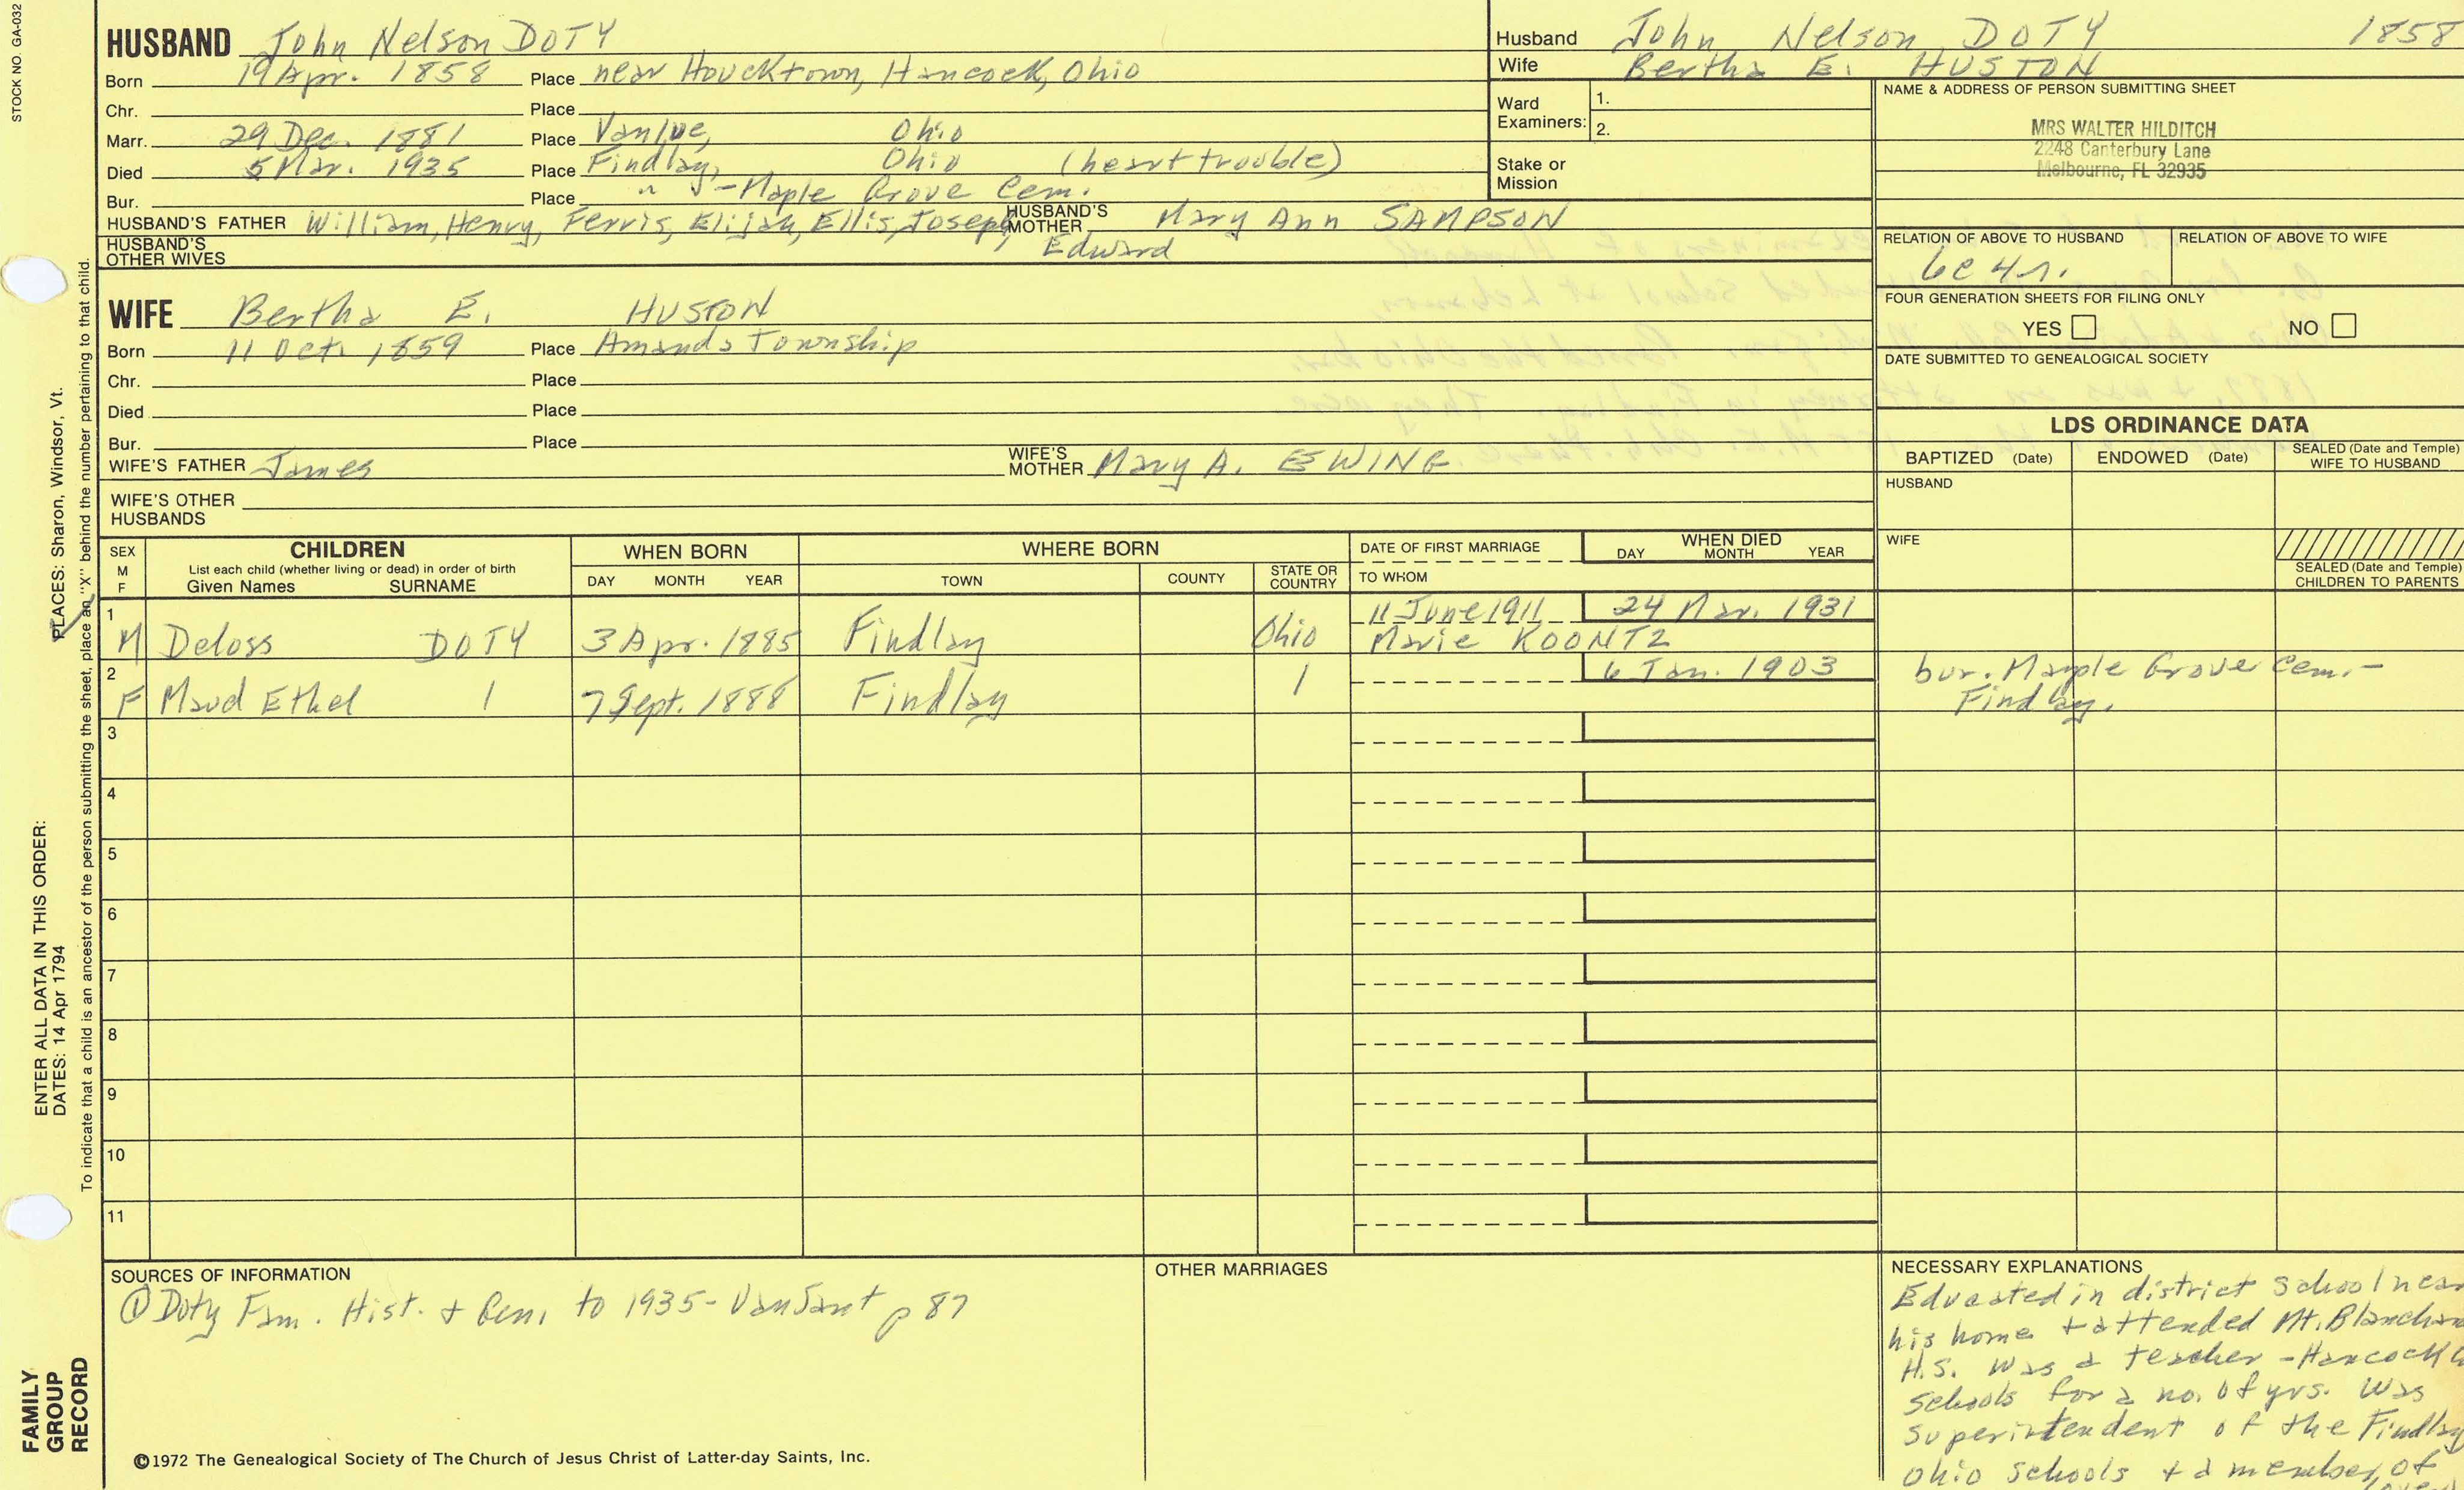 STOCK NO. GA-032
HUSBAND John Nelson DOTY
Born 19 Apr. 1858 Place near Houcktown, Hancock, Ohio
Chr. Place
Marr. 29 Dec. 1881 Place Vanlue, Ohio
Died 5 Mar. 1935 Place Findlay, Ohio (heart trouble)
Bur. Place " - Maple Grove Cem.
HUSBAND'S FATHER William, Henry, Ferris, Elijah, Ellis, Joseph, HUSBAND'S MOTHER Mary Ann SAMPSON
Edward
HUSBAND'S OTHER WIVES
Husband John Nelson DOTY 1858
Wife Bertha E. HUSTON
Ward Examiners: 1.
2.
Stake or Mission
NAME & ADDRESS OF PERSON SUBMITTING SHEET
MRS WALTER HILDITCH
2248 Canterbury Lane
Melbourne, FL 32935
RELATION OF ABOVE TO HUSBAND RELATION OF ABOVE TO WIFE
6c 4r.
FOUR GENERATION SHEETS FOR FILING ONLY
YES NO
DATE SUBMITTED TO GENEALOGICAL SOCIETY
WIFE Bertha E. HUSTON
Born 11 Oct. 1859 Place Amanda Township
Chr. Place
Died Place
Bur. Place
WIFE'S FATHER James WIFE'S MOTHER Mary A. EWING
WIFE'S OTHER HUSBANDS
LDS ORDINANCE DATA
BAPTIZED (Date) ENDOWED (Date) SEALED (Date and Temple) WIFE TO HUSBAND
HUSBAND
WIFE
SEALED (Date and Temple) CHILDREN TO PARENTS
SEX M F
CHILDREN
List each child (whether living or dead) in order of birth
Given Names SURNAME
WHEN BORN
DAY MONTH YEAR
WHERE BORN
TOWN COUNTY STATE OR COUNTRY
DATE OF FIRST MARRIAGE
TO WHOM
WHEN DIED
DAY MONTH YEAR
1 11 June 1911 24 Mar. 1931
M Deloss DOTY 3 Apr. 1885 Findlay Ohio Marie KOONTZ
2 6 Jan. 1903 bur. Maple Grove Cem. -
F Maud Ethel 7 Sept. 1888 Findlay Findlay.
3
4
5
6
7
8
9
10
11
SOURCES OF INFORMATION
① Doty Fam. Hist. + Gen. to 1935 - VanSant p 87
OTHER MARRIAGES
NECESSARY EXPLANATIONS
Educated in district school near
his home + attended Mt. Blanchard
H.S. Was a teacher - Hancock
schools for a no. of yrs. Was
superintendent of the Findlay
Ohio schools + a member of
©1972 The Genealogical Society of The Church of Jesus Christ of Latter-day Saints, Inc.
FAMILY GROUP RECORD
ENTER ALL DATA IN THIS ORDER:
DATES: 14 Apr 1794
PLACES: Sharon, Windsor, Vt.
To indicate that a child is an ancestor of the person submitting the sheet, place an "X" behind the number pertaining to that child.